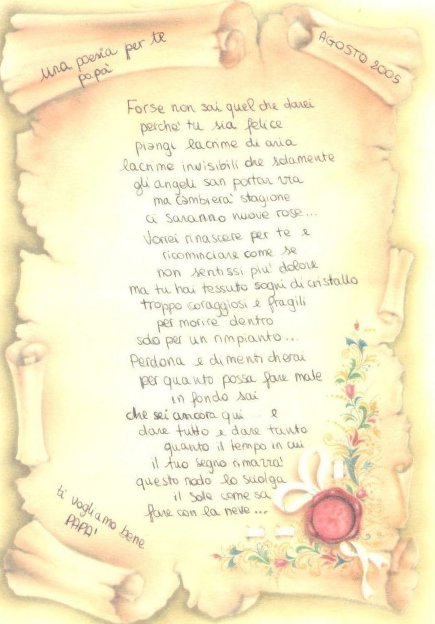 una poesia per te
papà
AGOSTO 2005
Forse non sai quel che darei
perche' tu sia felice
piangi lacrime di aria
lacrime invisibili che solamente
gli angeli san portar via
ma cambierà stagione
ci saranno nuove rose...
vorrei rinascere per te e
ricominciare come se
non sentissi più dolore
ma tu hai tessuto sogni di cristallo
troppo coraggiosi e fragili
per morire dentro
solo per un rimpianto...
Perdona e dimenticherai
per quanto possa fare male
in fondo sai
che sei ancora qui... e
dare tutto e dare tanto
quanto il tempo in cui
il tuo segno rimarra'
questo nodo lo sciolga
il sole come sa
fare con la neve...
ti vogliamo bene
PAPA'